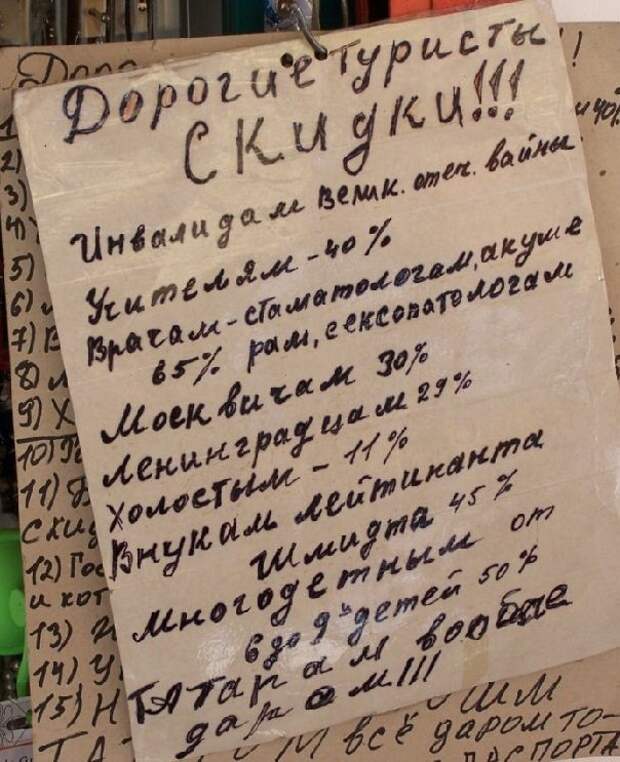 Дорогие туристы
СКИДКИ!!!
Инвалидам Велик. отеч. вайны
Учителям - 40%
Врачам - стаматологам, акуше
65% рам, сексопатологам
Москвичам 30%
Ленинградцам 29%
Холостым - 11%
Внукам лейтинанта
Шмидта 45%
Многодетным от
до детей 50%
ТАТарам вообще
даром!!!
2)
3)
5)
6)
7) В
9) Х
10)
11)
12) Гос
и кот
13)
14) У
15) Н
всё даром то-